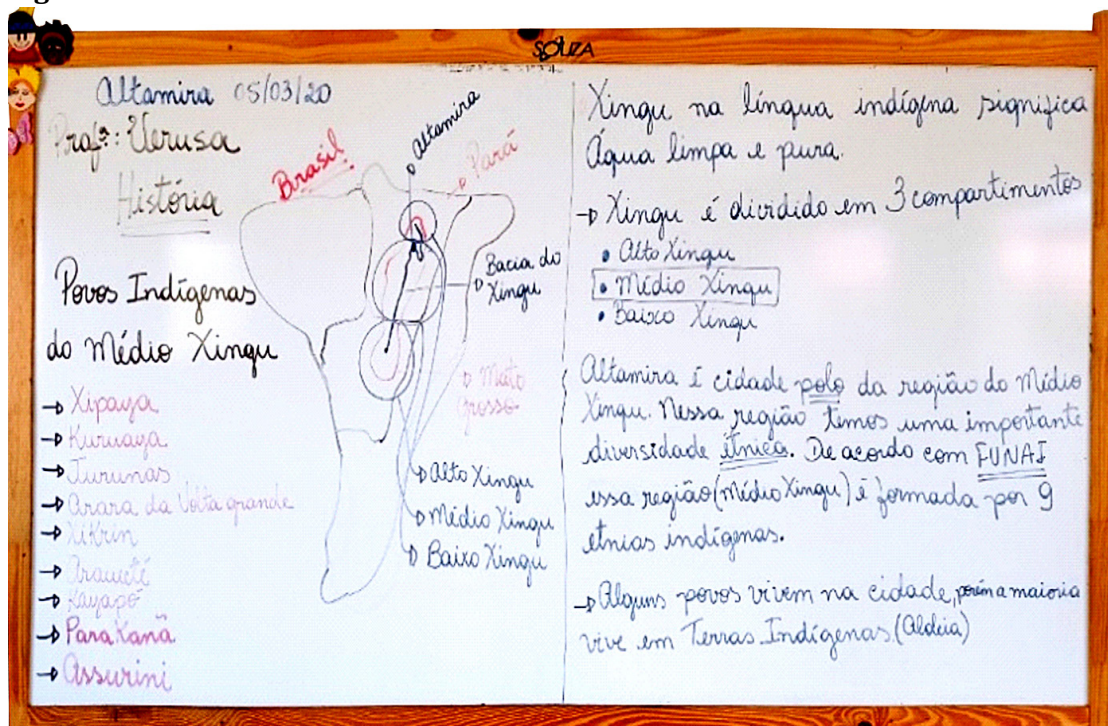 SOUZA
Altamira 05/03/20
Profª: Verusa
História
Povos Indígenas
do Médio Xingu
→ Xipaya
→ Kuruaya
→ Jurunas
→ Arara da Volta grande
→ Xikrin
→ Araweté
→ Kayapó
→ Parakanã
→ Assurini
Brasil
Altamira
Pará
Bacia do
Xingu
Mato
Grosso
Alto Xingu
Médio Xingu
Baixo Xingu
Xingu na língua indígena significa
Água limpa e pura.
→ Xingu é dividido em 3 compartimentos
• Alto Xingu
• Médio Xingu
• Baixo Xingu
Altamira é cidade polo da região do Médio
Xingu. Nessa região temos uma importante
diversidade étnica. De acordo com FUNAI
essa região (Médio Xingu) é formada por 9
etnias indígenas.
→ Alguns povos vivem na cidade, porém a maioria
vive em Terras Indígenas. (Aldeia)